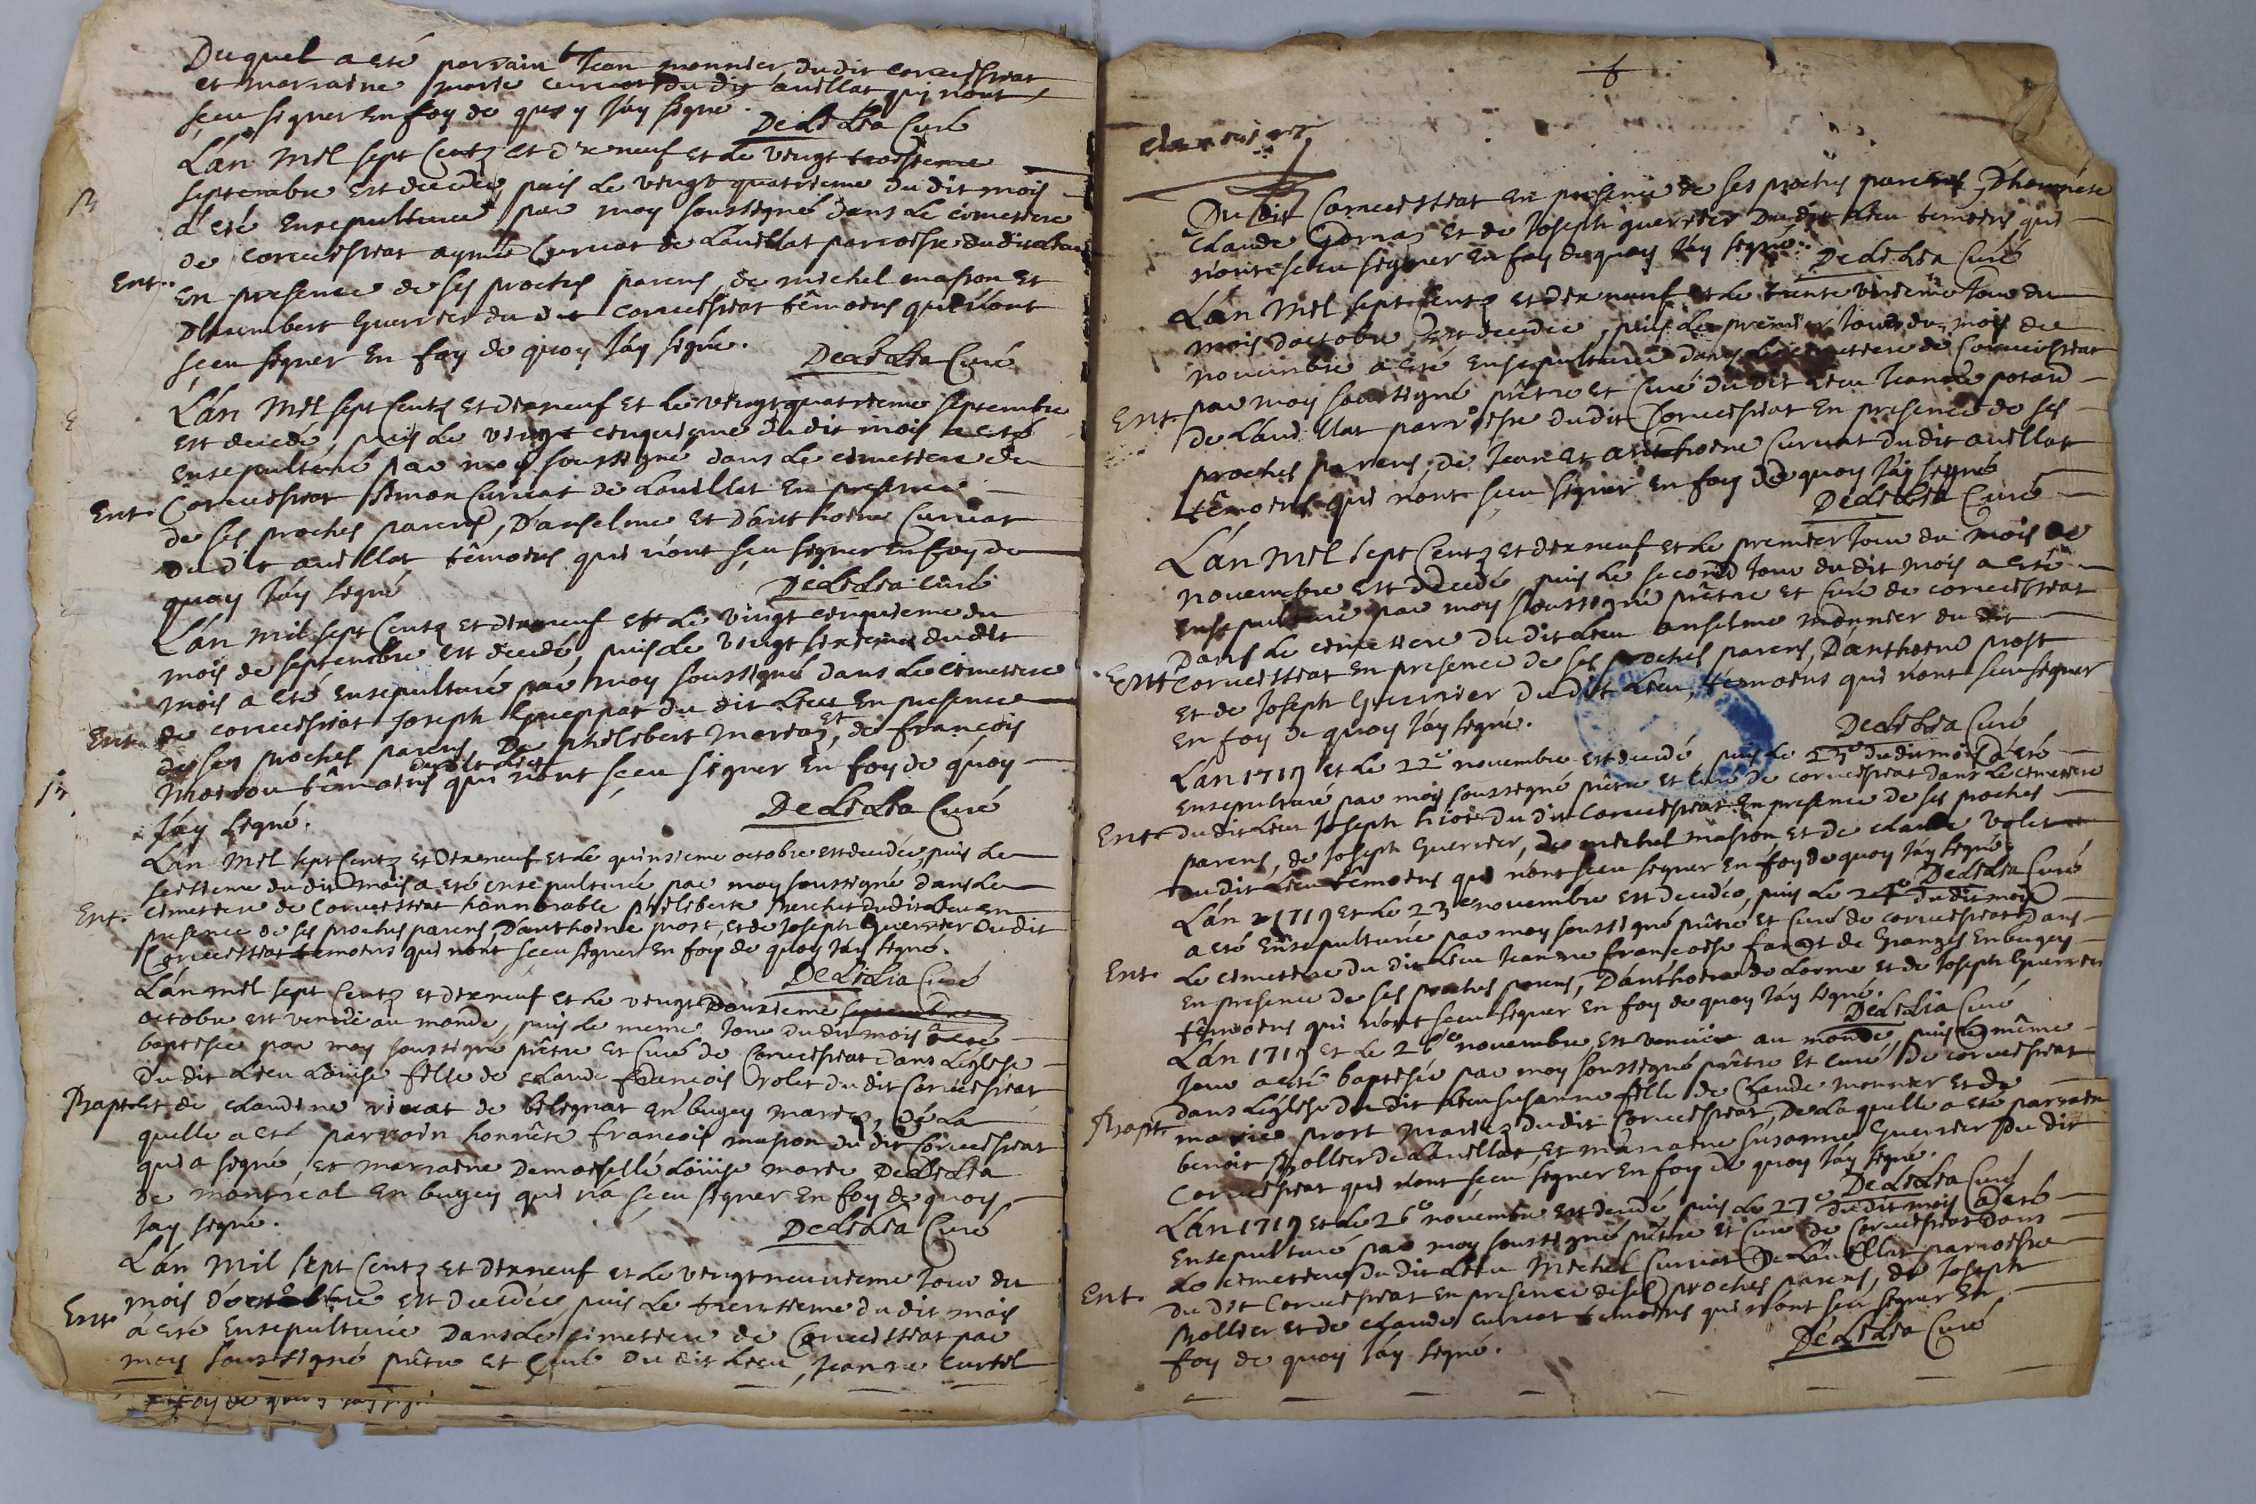 Duquel a eté parrain Jean monnier du dit corcessiat
et marraine marie curvat du dit auillat qui n'ont
sceu signer En foy de quoy J'ay signé.
DeLiLia Curé
L'an mil sept Centz et dixneuf et le vingt troisieme
septembre est decedée, puis le vingt quatrieme du dit mois
a eté Ensepulturée par moy soussigné dans le cimetiere
de corcessiat aymée Curvat de Lauillat parroisse du dit lieu
Ent.
En presence de ses proches parens, de michel masson et
D'humbert Guerrier du dit corcessiat têmoins qui n'ont
sceu signer En foy de quoy J'ay signé.
DeLiLia Curé
L'an Mil sept Centz et dixneuf et le vingt quatrieme septembre
est decedé, puis le vingt cinquieme du dit mois a eté
Ensepulturé par moy soussigné dans le cimetiere de
Ent. Corcessiat simon Curvat de Lauillat En presence
de ses proches parens, D'anselme et D'anthoine Curvat
du dit auillat têmoins qui n'ont sceu signer En foy de
quoy J'ay signé
DeLiLia Curé
L'an mil sept Centz et dixneuf et le vingt cinquieme du
mois de septembre est decedé, puis le vingt sixieme du dit
mois a eté Ensepulturé par moy soussigné dans le cimetiere
Ent. de corcessiat Joseph du dit lieu En presence
de ses proches parens, De philibert mariaz, et de françois
du dit Lieu
têmoins qui n'ont sceu signer En foy de quoy
J'ay signé.
DeLiLia Curé
L'an Mil sept Centz et Dixneuf et le quinzieme octobre est decedée, puis le
seizieme du dit mois a eté ensepulturée par moy soussigné dans le
Ent. cimetiere de Corcessiat honnorable philiberte du dit lieu en
presence de ses proches parens, D'anthoine prost, et de Joseph Guerrier du dit
Corcessiat temoins qui n'ont sceu signer En foy de quoy J'ay signé.
DeLiLia Curé
L'an mil sept Centz et dixneuf et le vingt Deuxieme septembre
octobre est venüe au monde, puis le meme Jour du dit mois a eté
baptisée par moy soussigné prêtre et Curé de Corcessiat dans L'eglise
du dit Lieu Loüise fille de claude françois Volet du dit Corcessiat
Bapt. et de claudine de belignat En bugey mariez, De La
quelle a eté parrain honnête françois masson du dit Corcessiat
qui a signé, et marraine Damoiselle Loüise marie DeLiLia
de montréal En bugey qui n'a sceu signer En foy de quoy
J'ay signé.
DeLiLia Curé
L'an Mil sept Centz et dixneuf et le vingt neuvieme Jour du
mois d'octobre est decedée, puis le trentieme du dit mois
Ent. a eté Ensepulturée Dans le cimetiere de Corcessiat par
moy soussigné prêtre et Curé du dit lieu, Jeanne Curtil
foy de quoy J'ay signé
Du dit Corcessiat En presence de ses proches parens, D'honnête
Claude et de Joseph guerrier du dit Lieu temoins qui
n'ont sceu signer En foy de quoy J'ay signé.
DeLiLia Curé
L'an Mil sept Centz et dixneuf et le trente unieme Jour du
mois d'octobre est decedée, puis le premier Jour du mois de
novembre a eté Ensepulturée dans le cimetiere de Corcessiat
Ent. par moy soussigné prêtre et Curé du dit lieu Jeanne potard
de Lauillat parroisse du dit Corcessiat En presence de ses
proches parens, de Jean et anthoine Curvat du dit auillat
têmoins qui n'ont sceu signer En foy de quoy J'ay signé
DeLiLia Curé
L'an Mil sept Centz et dixneuf et le premier Jour du mois de
novembre est decedé, puis le second Jour du dit mois a eté
Ensepulturé par moy soussigné prêtre et Curé de corcessiat
Dans le cimetiere du dit Lieu anselme monnier du dit
Ent. corcessiat En presence de ses proches parens, D'anthoine prost
et de Joseph Guerrier du dit Lieu, têmoins qui n'ont sceu signer
En foy de quoy J'ay signé.
DeLiLia Curé
L'an 1719 et le 22e novembre est decedé puis le 23e du dit mois a eté
Ensepulturé par moy soussigné prêtre et Curé de corcessiat dans le cimetiere
Ent. du dit Lieu Joseph du dit Corcessiat En presence de ses proches
parens, de Joseph Guerrier, de michel masson et de claude Volet
du dit Lieu temoins qui n'ont sceu signer En foy de quoy J'ay signé.
DeLiLia Curé
L'an 1719 et le 23e novembre est decedée, puis le 24e du dit mois
a eté Ensepulturée par moy soussigné prêtre et Curé de corcessiat Dans
Ent. Le cimetiere du dit Lieu Jeanne françoise de Granges En bugey
En presence de ses proches parens, D'anthoine de Lorme et de Joseph Guerrier
têmoins qui n'ont sceu signer En foy de quoy J'ay signé.
DeLiLia Curé
L'an 1719 et le 26e novembre, est venüe au monde, puis le même
Jour a eté baptisée par moy soussigné prêtre et curé de corcessiat
dans L'eglise du dit Lieu susanne fille de Claude monnier et de
Bapt. marie prost mariez du dit Corcessiat, De La quelle a eté parrain
benoit Rollier de Lauillat, et marraine susanne Guerrier du dit
Corcessiat qui n'ont sceu signer En foy de quoy J'ay signé.
DeLiLia Curé
L'an 1719 et le 26e novembre est decedé puis le 27e du dit mois a eté
Ensepulturé par moy soussigné prêtre et Curé de Corcessiat dans
Le cimetiere du dit Lieu Michel Curvat De Lauillat parroisse
Ent. du dit Corcessiat En presence de ses proches parens, de Joseph
Rollier et de claude curvat temoins qui n'ont sceu signer En
foy de quoy J'ay signé.
DeLiLia Curé